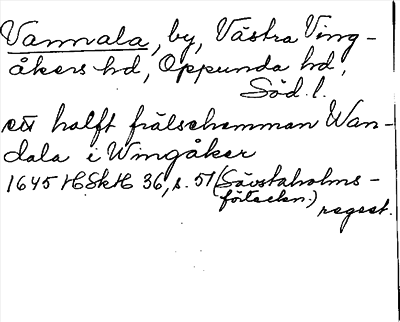 Vannala, by, Västra Ving-
åkers hd, Oppunda hd,
Söd. l.
ett halft frälsehemman Wan-
dala i Wingåker
1645 HSkH 36, s. 51 (Sävstaholms-
förteckn.)
regest.